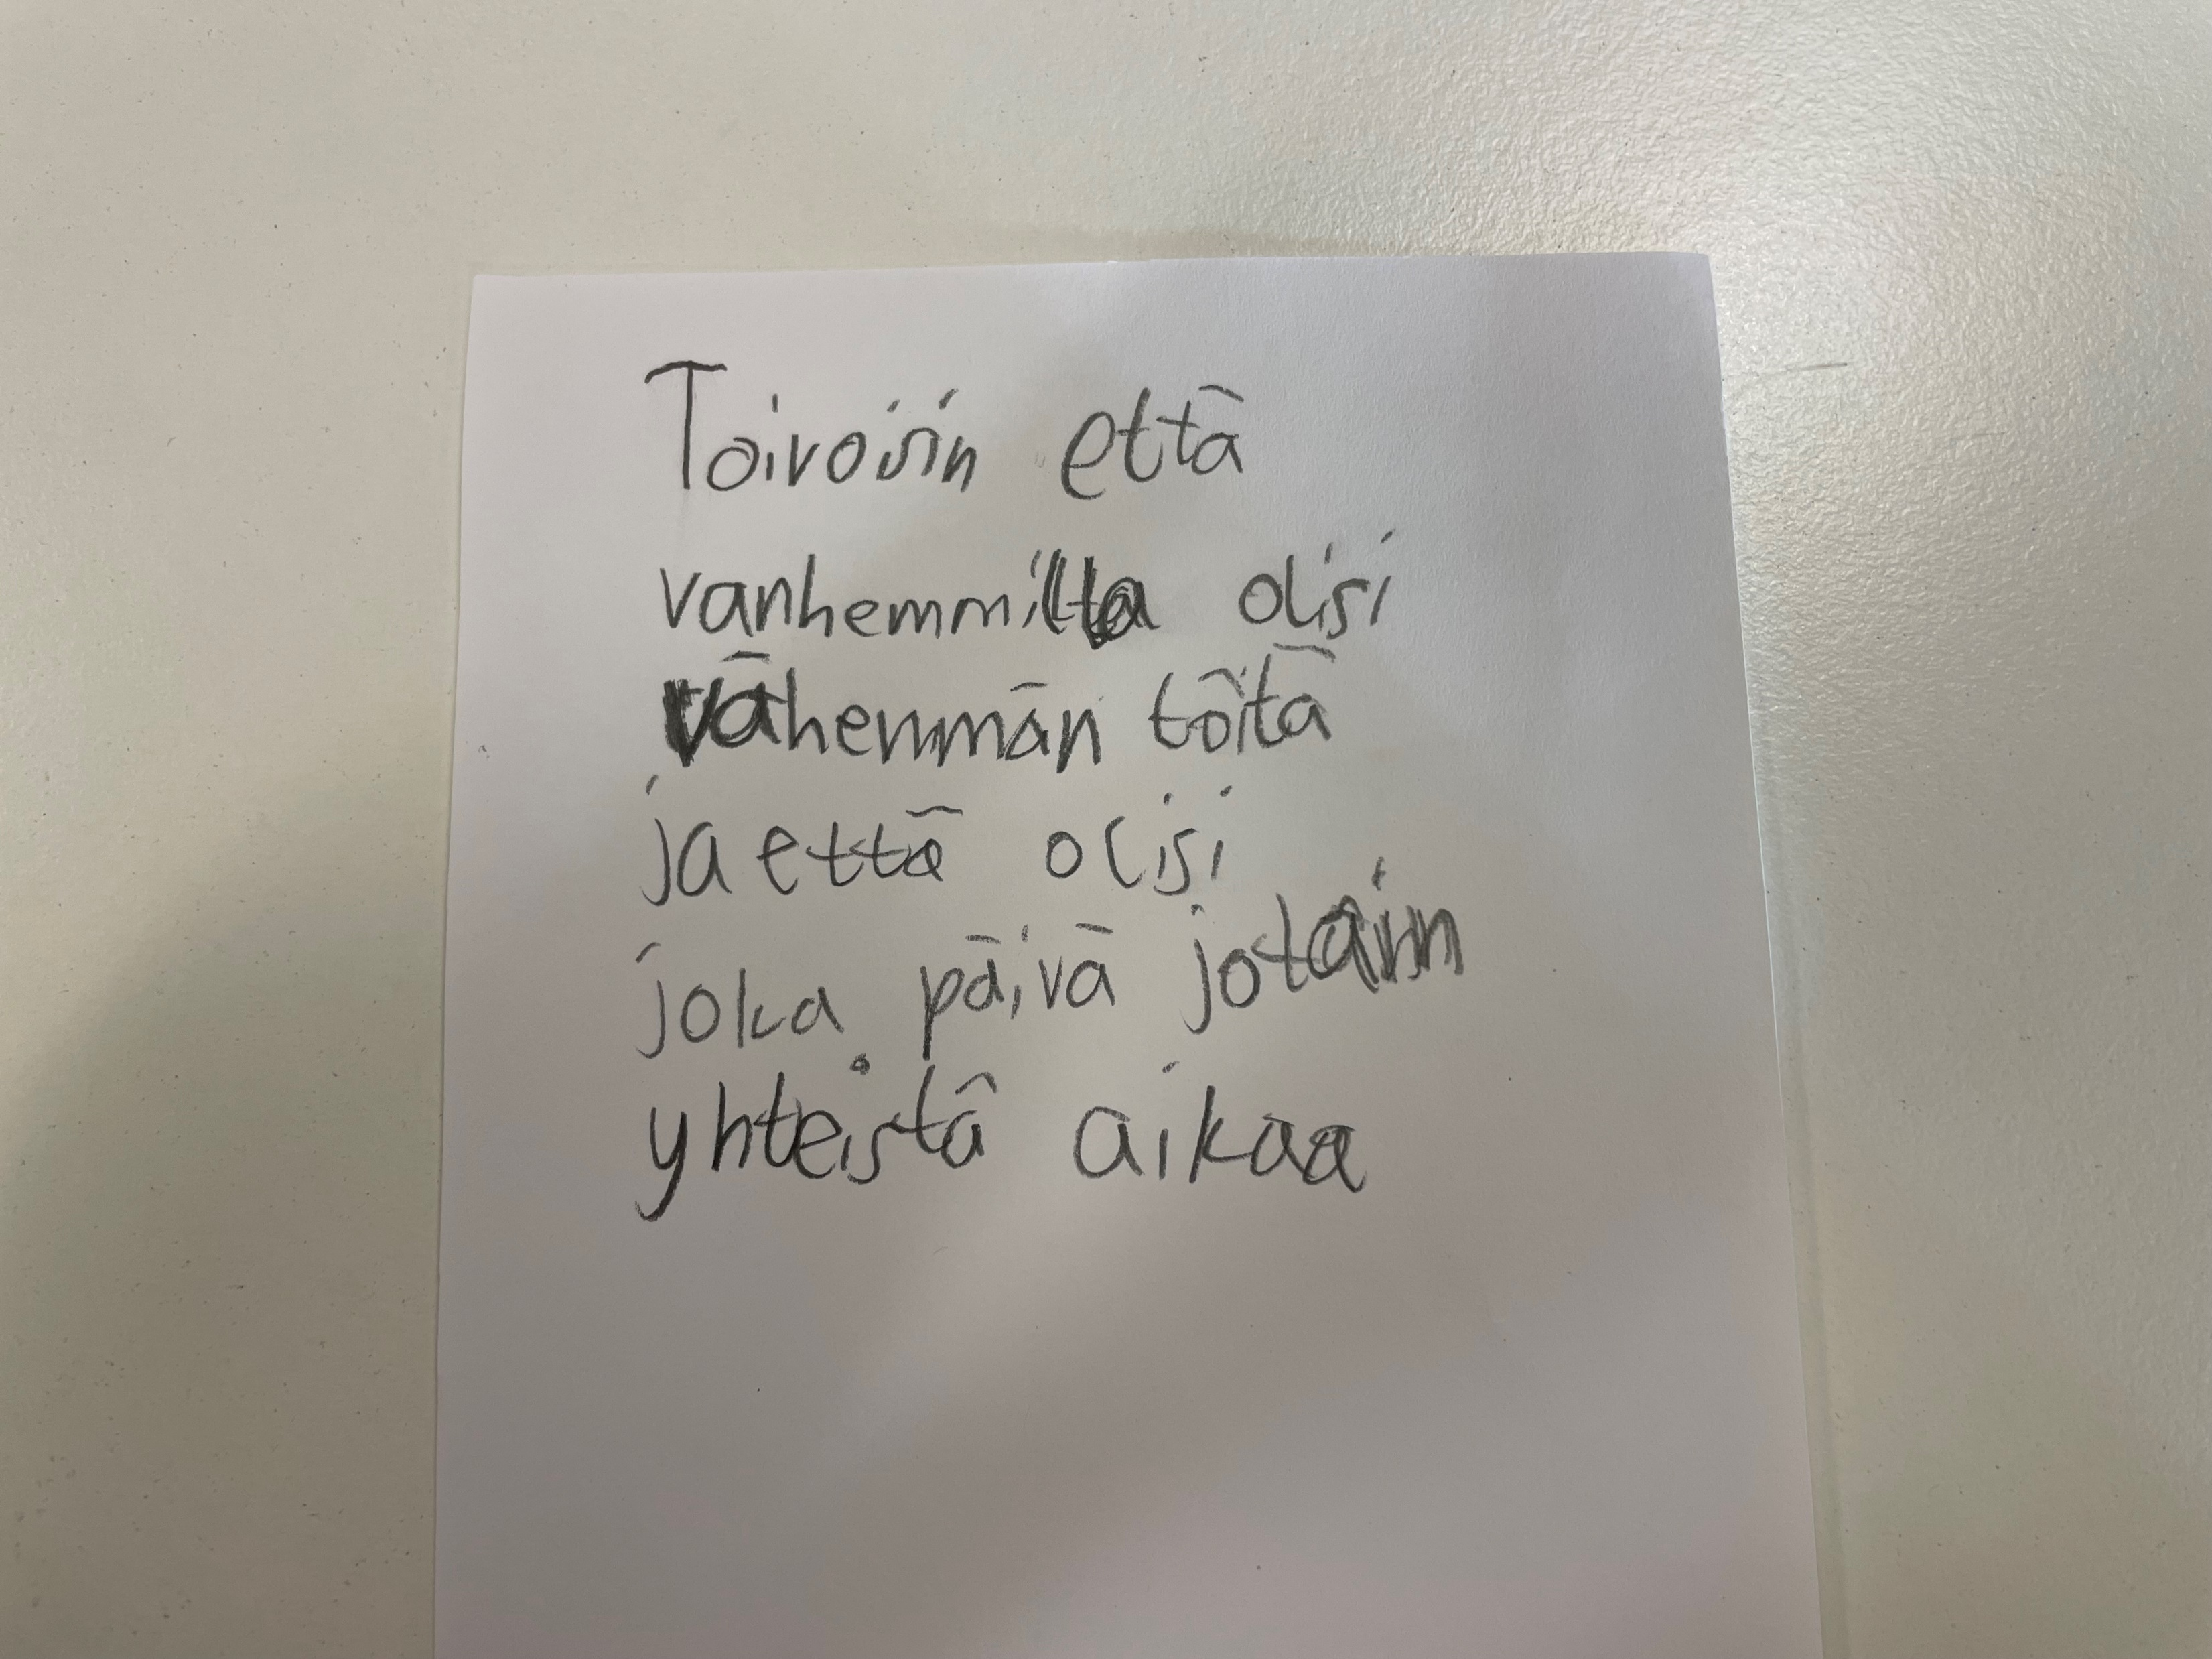 Toivoisin että
vanhemmilla olisi
vähemmän töitä
ja että olisi
joka päivä jotain
yhteistä aikaa